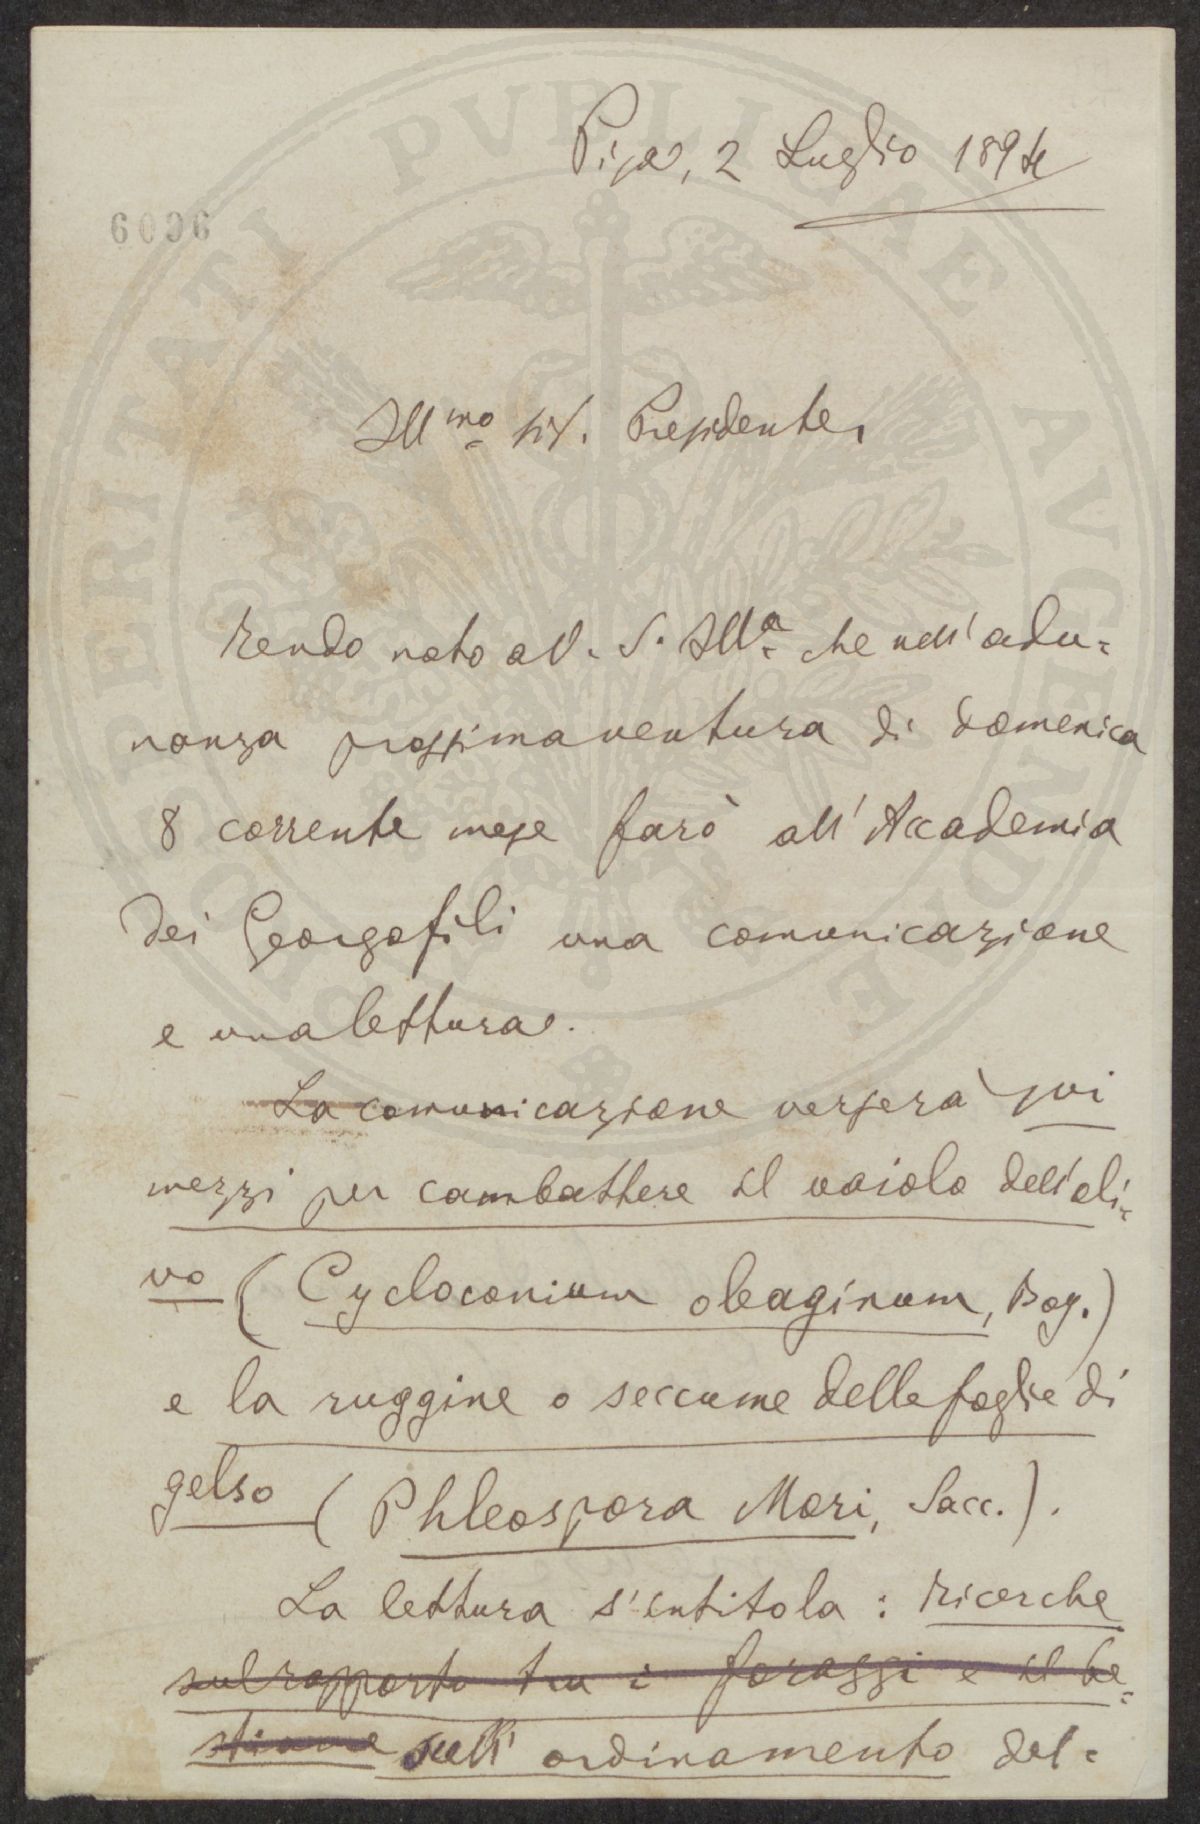 Pisa, 2 Luglio 1894
6096
Ill.mo sig. Presidente,
Rendo noto a V. S. Ill.a che nell'adu=
nanza prossima ventura di domenica
8 corrente mese farò all'Accademia
dei Georgofili una comunicazione
e una lettura.
La comunicazione verserà sui
mezzi per combattere il vaiolo dell'oli=
vo (Cycloconium oleaginum, Boy.)
e la ruggine o seccume delle foglie di
gelso (Phleospora Mori, Sacc.).
La lettura s'intitola: Ricerche
sul rapporto tra i foraggi e il be=
stiame sull'ordinamento del=
PROSPERITATI PVBLICAE AVGENDAE